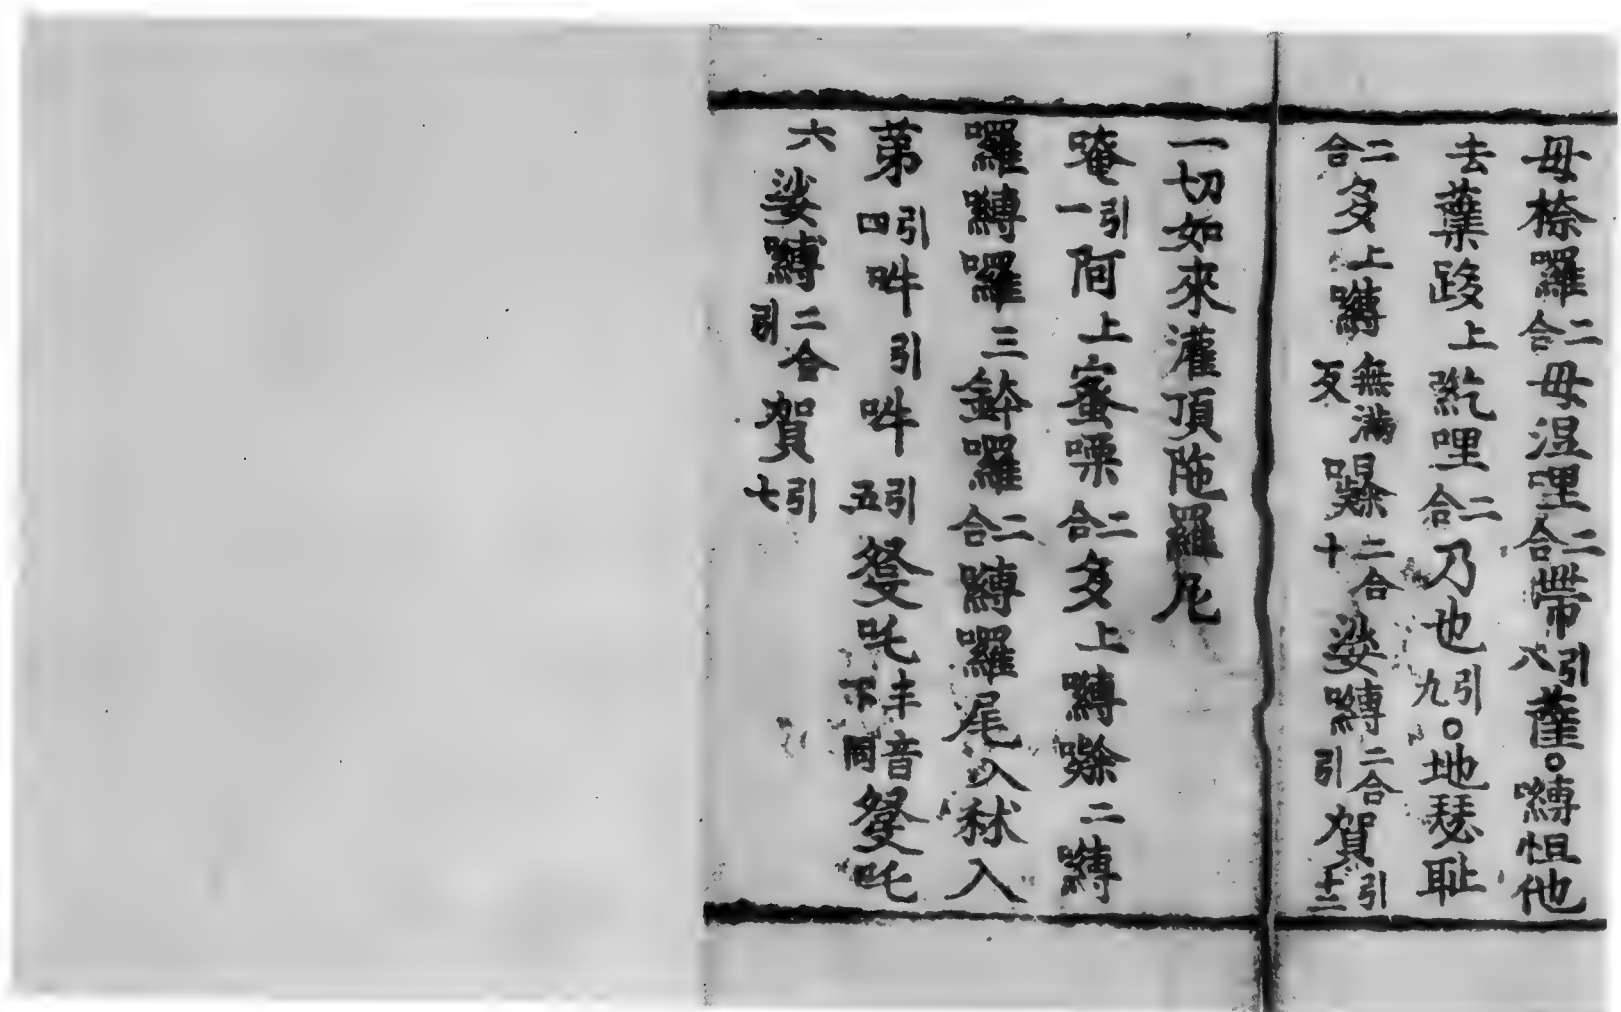 母捺囉二合母涅哩二合帶引八薩。嚩怛他
去葉跢上紇哩二合乃也引九。地瑟耻
二合多上嚩無滿反㘑二合十娑嚩二合引賀引十二
一切如來灌頂陁羅尼
唵引一阿上蜜㗚二合多上嚩㘑二嚩
囉嚩囉三鉢囉二合嚩囉尾入秫入
苐四引吽引吽引五發吒半音下同發吒
六娑嚩二合引賀引七